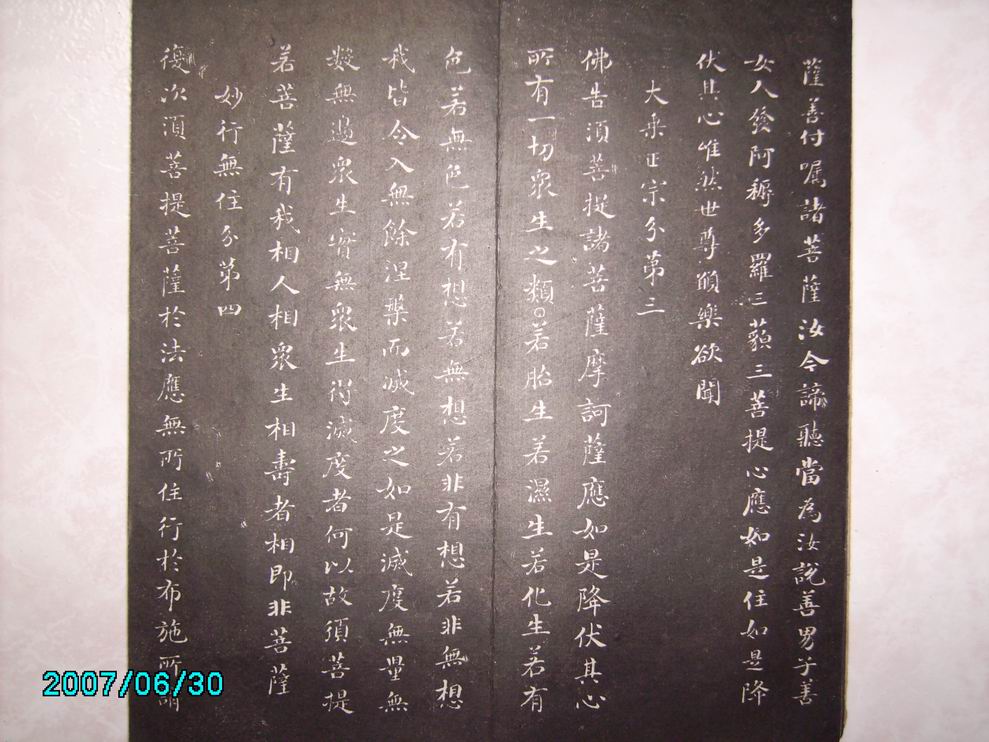 薩善付囑諸菩薩汝今諦聽當為汝說善男子善
女人發阿耨多羅三藐三菩提心應如是住如是降
伏其心唯然世尊願樂欲聞
大乘正宗分第三
佛告須菩提諸菩薩摩訶薩應如是降伏其心
所有一切眾生之類○若胎生若濕生若化生若有
色若無色若有想若無想若非有想若非無想
我皆令入無餘涅槃而滅度之如是滅度無量無
數無邊眾生實無眾生得滅度者何以故須菩提
若菩薩有我相人相眾生相壽者相即非菩薩
妙行無住分第四
復次須菩提菩薩於法應無所住行於布施所謂
2007/06/30